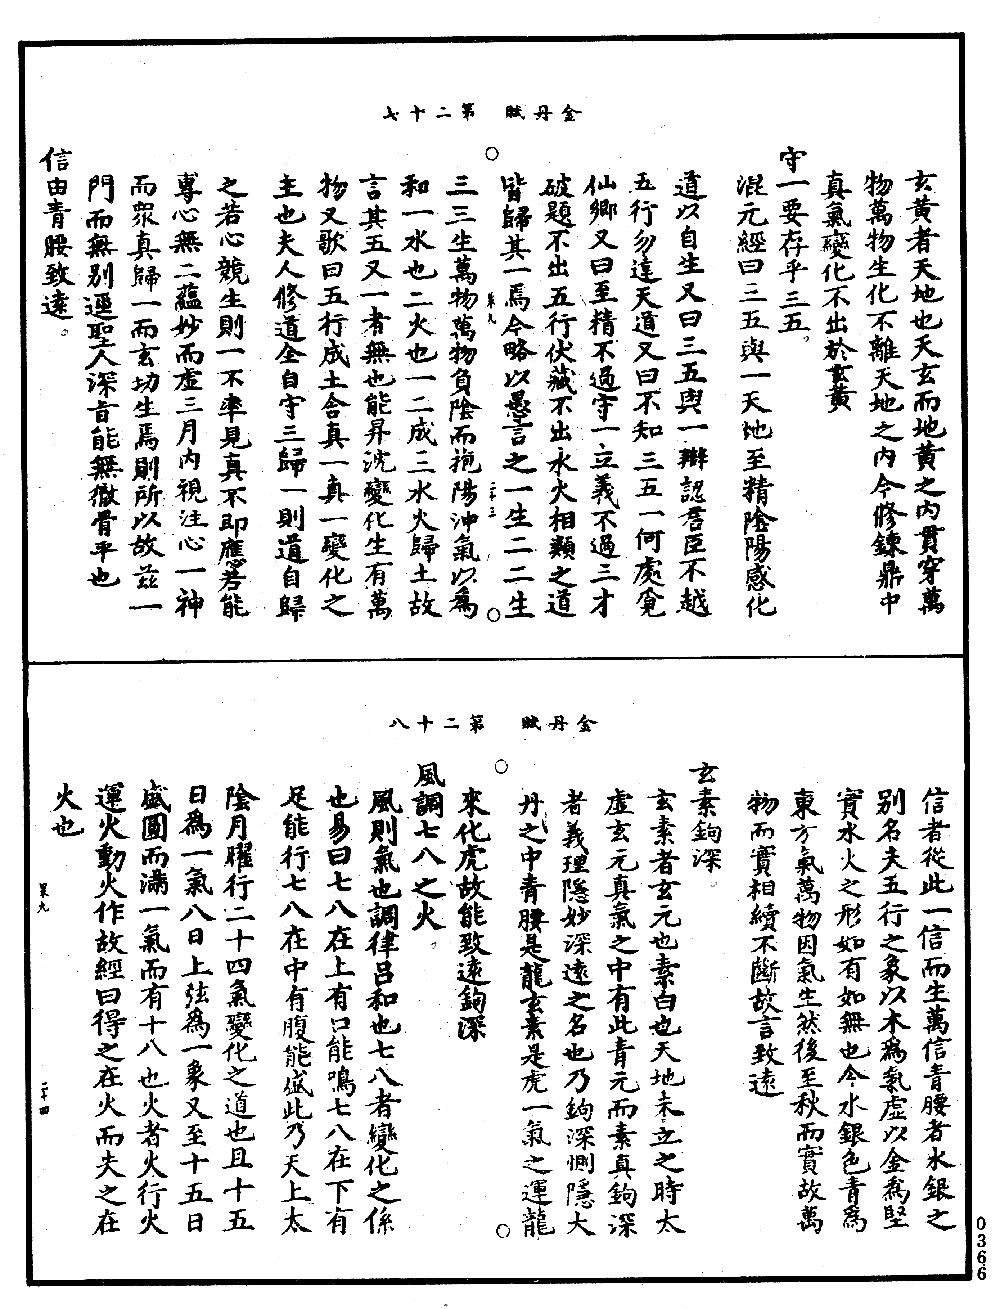 金丹賦　第二十七
玄黃者天地也天玄而地黃之內貫穿萬
物萬物生化不離天地之內今修鍊鼎中
真氣變化不出於玄黃
守一要存乎三五。
混元經曰三五與一天地至精陰陽感化
道以自生又曰三五與一辯認君臣不越
五行勿違天道又曰不知三五一何處覓
仙鄉又曰至精不過守一立義不過三才
破題不出五行伏藏不出水火相類之道
皆歸其一焉今略以愚言之一生二二生
三三生萬物萬物負陰而抱陽沖氣以為
和一水也二火也一二成三水火歸土故
言其五又一者無也能昇沈變化生有萬
物又歌曰五行成土合真一真一變化之
主也夫人修道全自守三歸一則道自歸
之若心競生則一不率見真不即應若能
專心無二蘊妙而虛三月內視注心一神
而眾真歸一而玄功生焉則所以故茲一
門而無別逕聖人深旨能無徹骨乎也
信由青腰致遠。
金丹賦　第二十八
信者從此一信而生萬信青腰者水銀之
別名夫五行之象以木為氣虛以金為堅
實水火之形如有如無也今水銀色青為
東方氣萬物因氣生然後至秋而實故萬
物而實相續不斷故言致遠
玄素鉤深。
玄素者玄元也素白也天地未立之時太
虛玄元真氣之中有此青元而素真鉤深
者義理隱妙深遠之名也乃鉤深惻隱大
丹之中青腰是龍玄素是虎一氣之運龍
來化虎故能致遠鉤深
風調七八之火。
風則氣也調律呂和也七八者變化之係
也易曰七八在上有口能鳴七八在下有
足能行七八在中有腹能盛此乃天上太
陰月曜行二十四氣變化之道也且十五
日為一氣八日上弦為一象又至十五日
盛圓而滿一氣而有十八也火者火行火
運火動火作故經曰得之在火而失之在
火也
0366